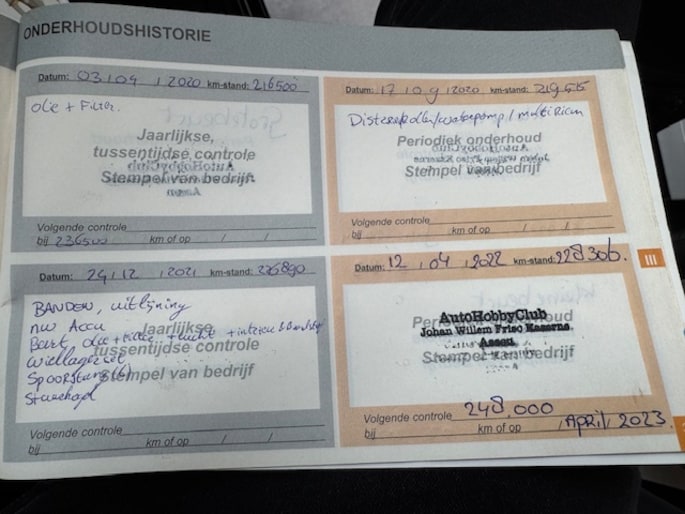 ONDERHOUDSHISTORIE
Datum: 03 / 04 / 2020 km-stand: 216500
Olie + Filter.
Jaarlijkse,
tussentijdse controle
Stempel van bedrijf
Volgende controle
bij 236500 km of op / /
Datum: 17 / 09 / 2020 km-stand:
/ waterpomp / multiriem
Periodiek onderhoud
Stempel van bedrijf
Volgende controle
bij km of op / /
Datum: 24 / 12 / 2021 km-stand: 226890
BANDEN, uitlijning
nw Accu
Beurt olie + filter + lucht + interieur
Jaarlijkse,
tussentijdse controle
Wiellager
Spoorstang
Stempel van bedrijf
Volgende controle
bij km of op / /
Datum: 12 / 04 / 2022 km-stand: 228306.
AutoHobbyClub
Johan Willem Friso Kazerne
Assen
Stempel van bedrijf
Volgende controle 248.000
bij km of op / APRIL / 2023
III